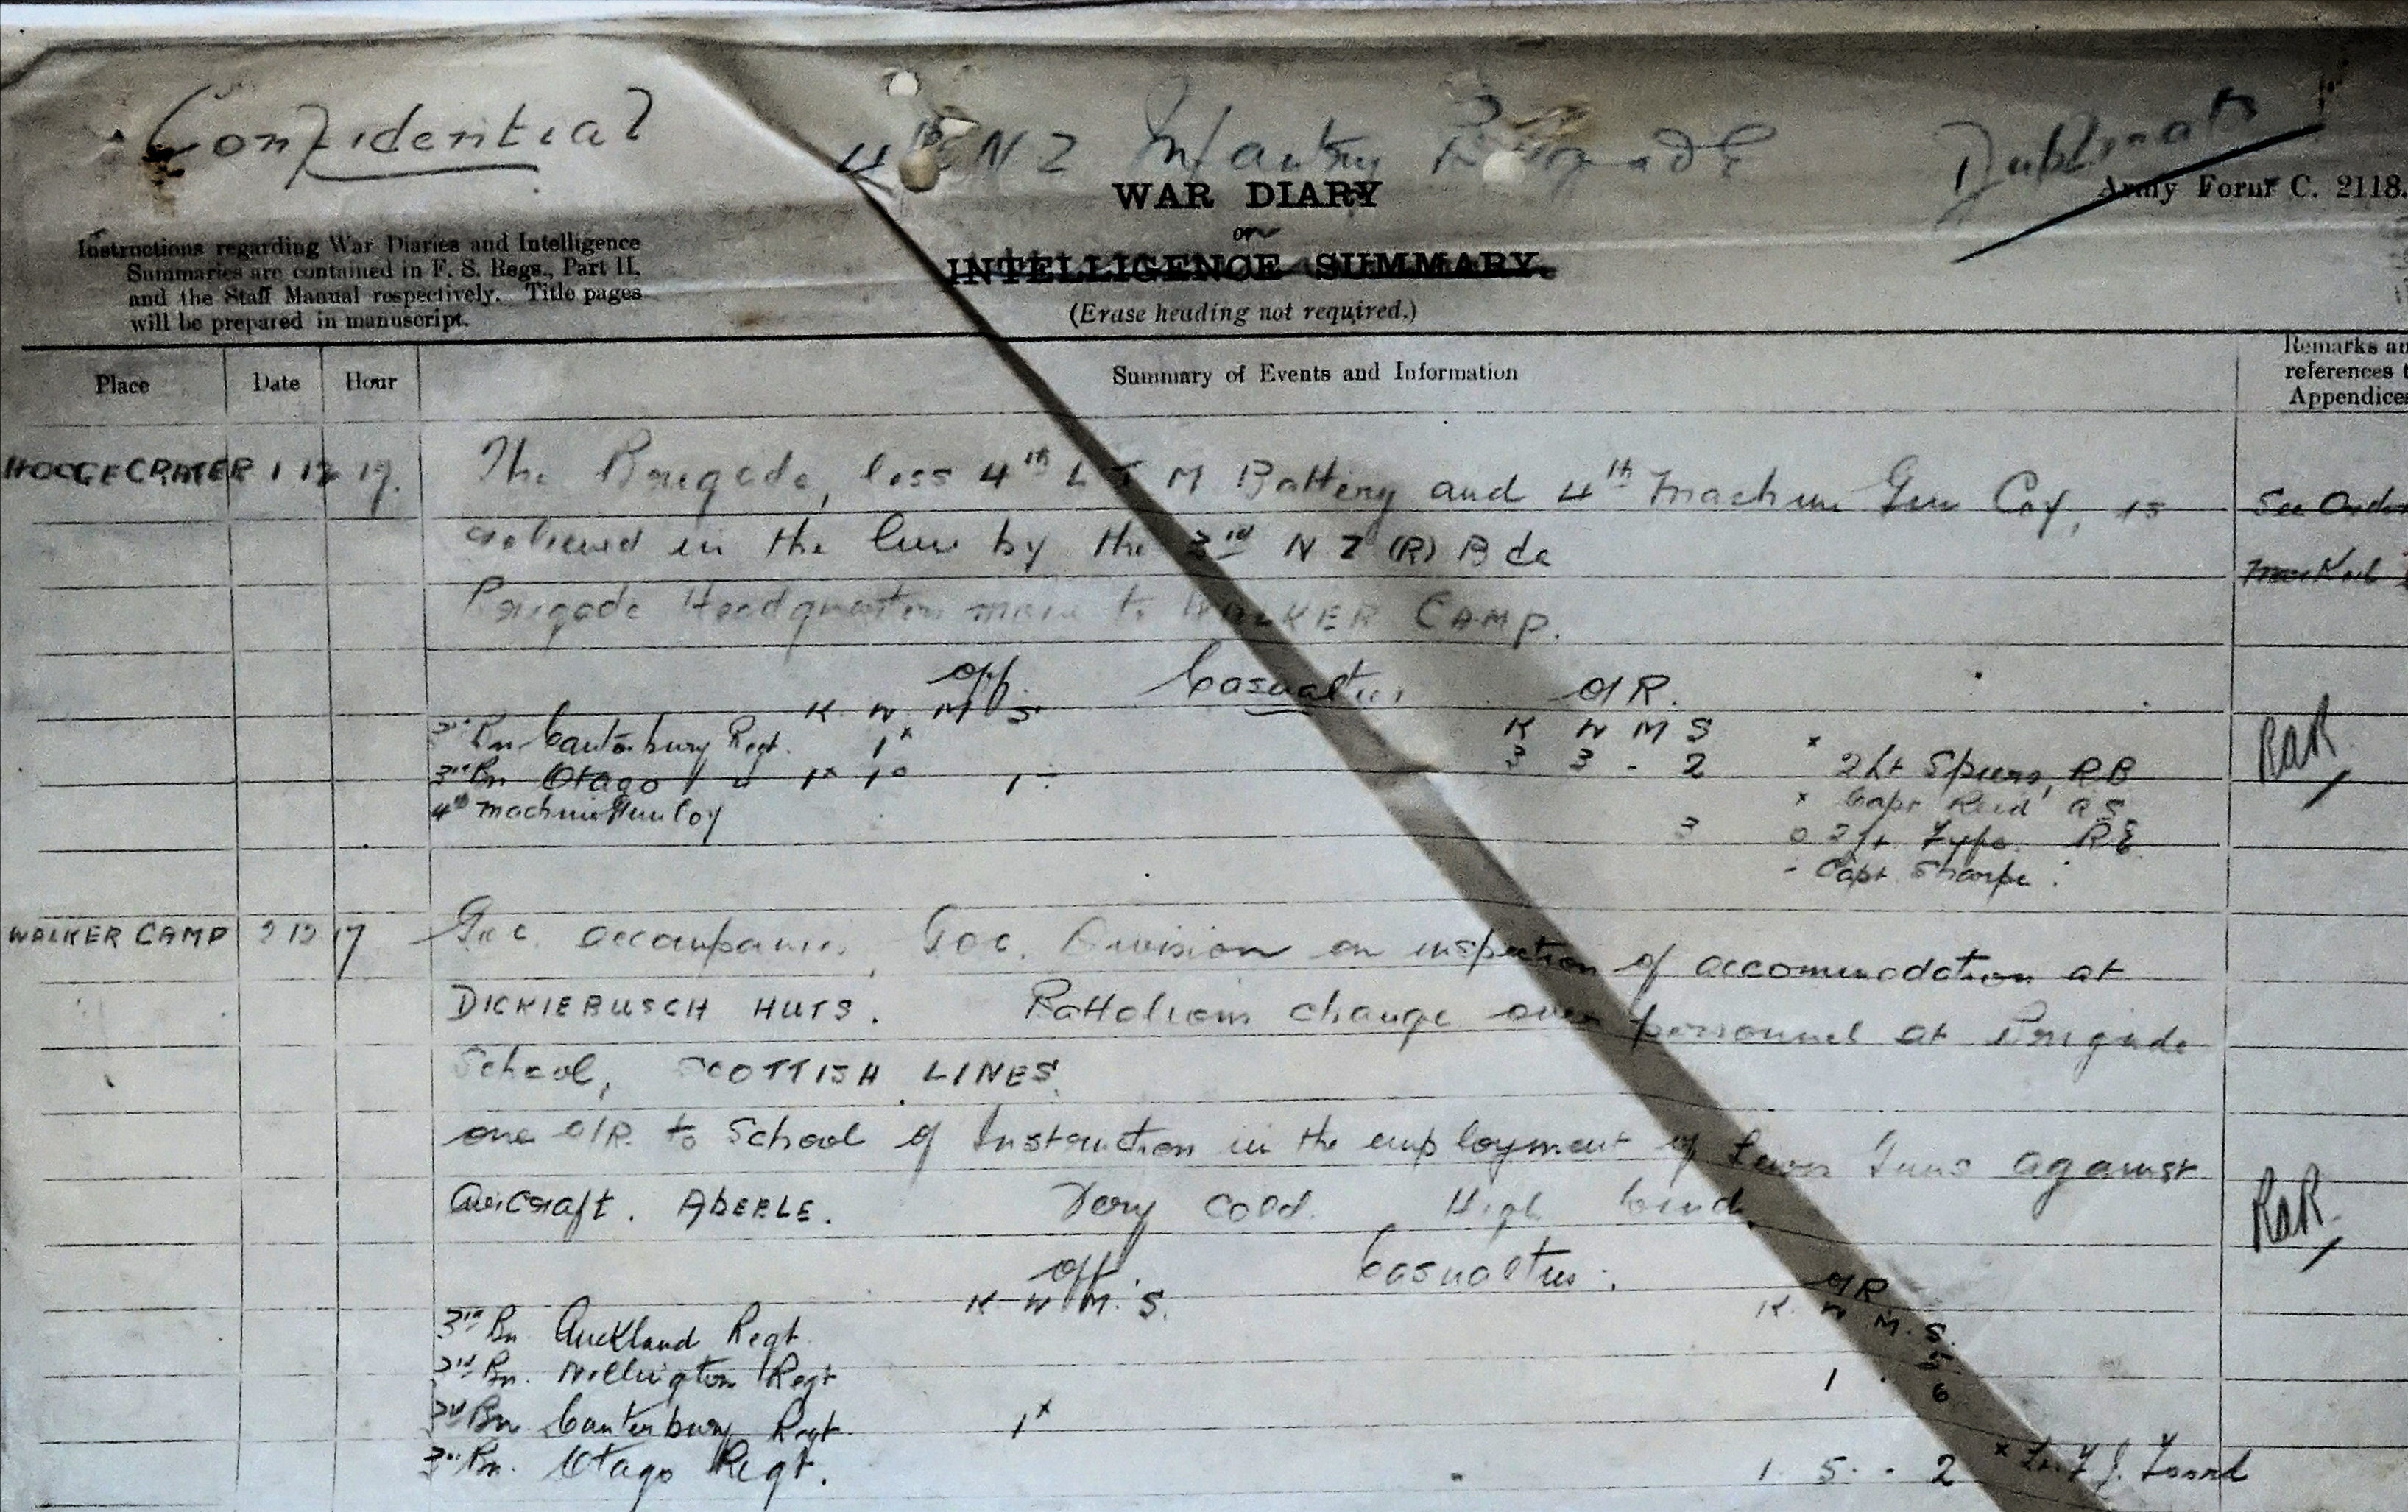 Confidential
4th N Z Infantry Brigade
Duplicate
WAR DIARY
or
INTELLIGENCE SUMMARY.
(Erase heading not required.)
Army Form C. 2118.
Instructions regarding War Diaries and Intelligence
Summaries are contained in F. S. Regs., Part II,
and the Staff Manual respectively. Title pages
will be prepared in manuscript.
Place Date Hour Summary of Events and Information
Remarks an
references t
Appendices
HOOGE CRATER 1 12 17. The Brigade, less 4th L T M Battery and 4th Machine Gun Coy, is
See Order
relieved in the line by the 3rd N Z (R) B de
Marked
Brigade Headquarters move to WALKER CAMP.
Off. Casualties O/R.
K W M S K W M S
3rd Bn. Canterbury Regt. 1x 3 3 - 2 x 2Lt Spiers, R.B
3rd Bn Otago " 1x 1o 1- x Capt Reid A S
4th Machine Gun Coy 3 o 2/Lt Fype R E
- Capt Sharpe
RAR
WALKER CAMP 2 12 17 G.O.C. accompanies G.O.C. Division on inspection of accomodation at
DICKIEBUSCH HUTS. Battalions change over personnel at Brigade
School, SCOTTISH LINES.
one O/R. to School of Instruction in the employment of Lewis Guns against
Aircraft. ABEELE. Very cold. High wind.
RAR
Off. Casualties. O/R
K W M. S. K. W M. S.
3rd Bn Auckland Regt
3rd Bn. Wellington Regt 1 . 6
3rd Bn Canterbury Regt. 1x
3rd Bn. Otago Regt. 1 5 - 2 x